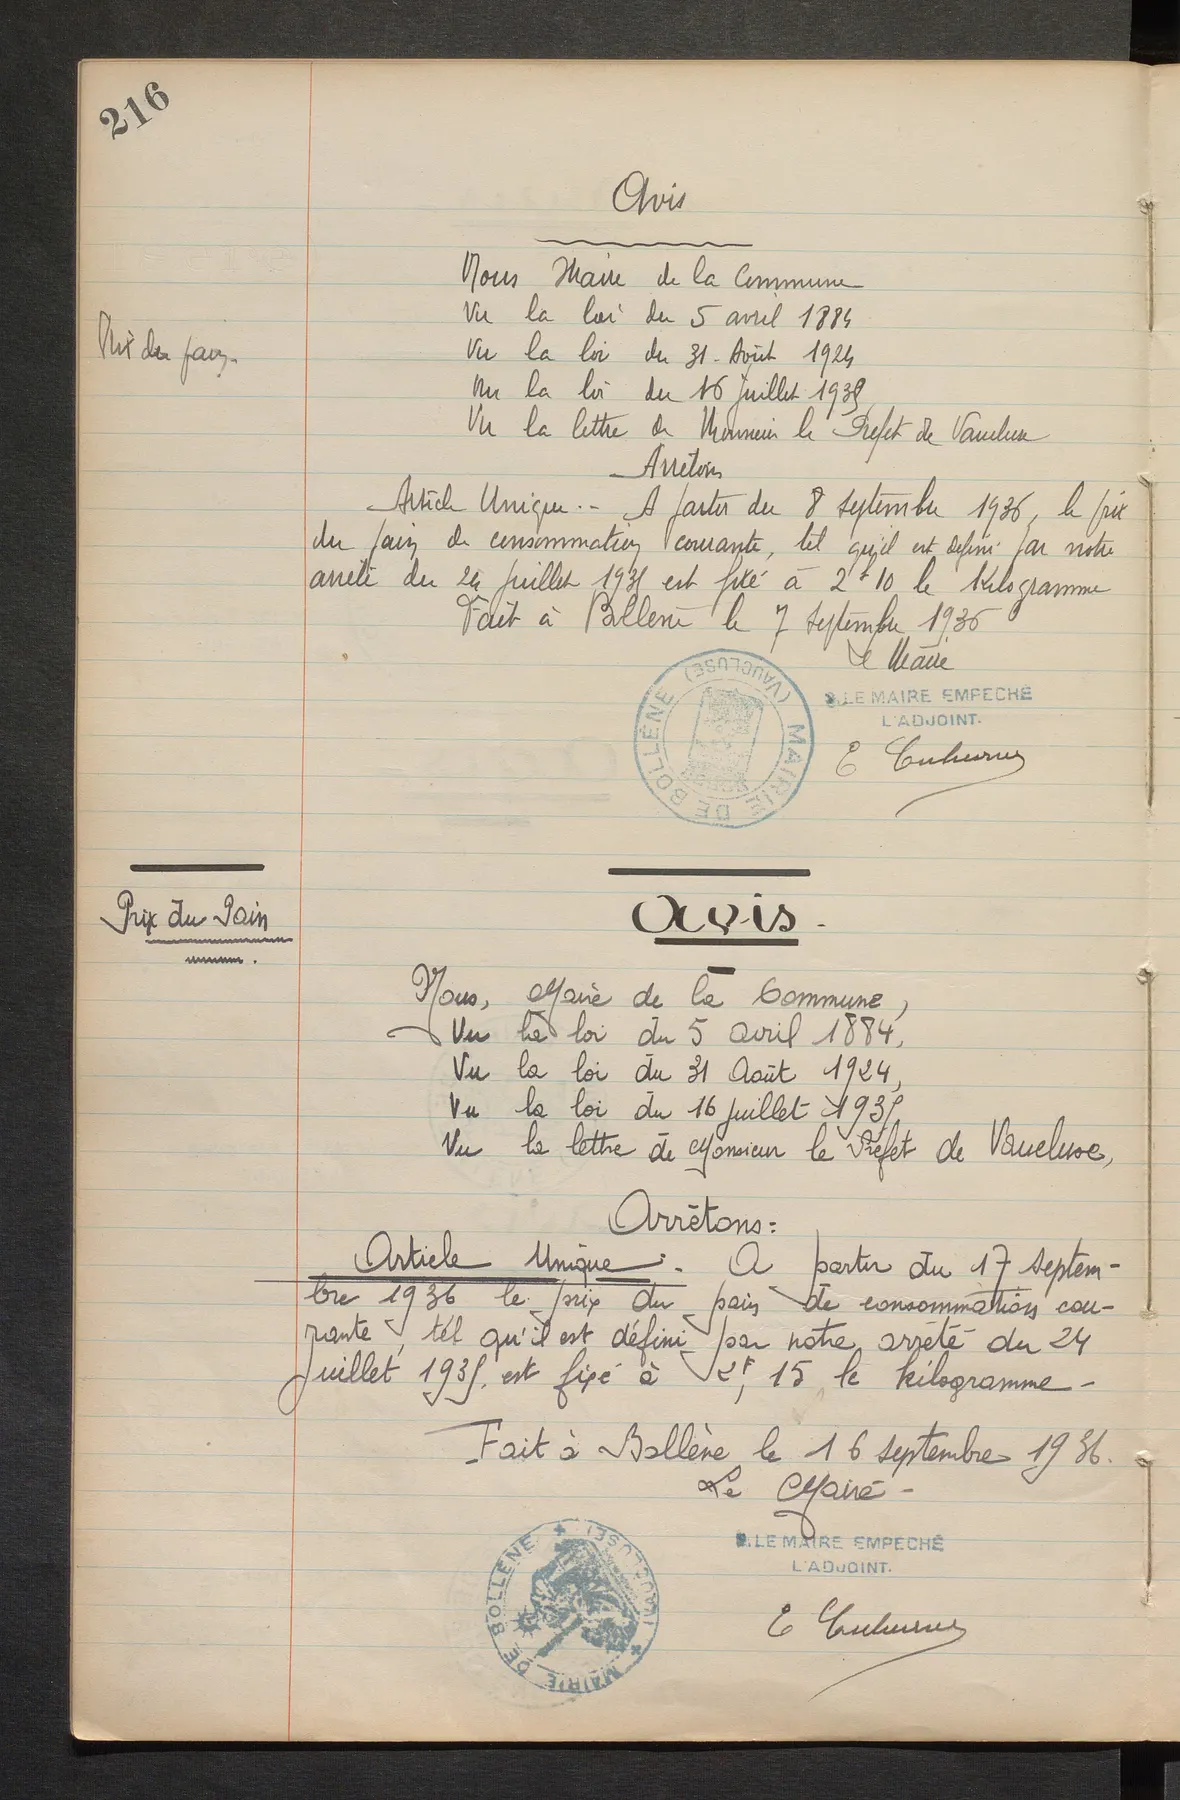 216
Avis
Nous Maire de la Commune
Vu la loi du 5 avril 1884
Prix du pain.
Vu la loi du 31 Août 1924
Vu la loi du 16 Juillet 1935
Vu la lettre de Monsieur le Préfet de Vaucluse
Arrêtons
Article Unique.- A partir du 8 septembre 1936, le prix
du pain de consommation courante, tel qu'il est défini par notre
arrêté du 24 Juillet 1935 est fixé à 2f10 le Kilogramme
Fait à Bollène le 7 septembre 1936
Le Maire
MAIRIE DE BOLLÈNE (VAUCLUSE)
P. LE MAIRE EMPECHÉ
L'ADJOINT.
E
Avis.
Prix du Pain
Nous, Maire de la Commune,
Vu la loi du 5 avril 1884,
Vu la loi du 31 Août 1924,
Vu la loi du 16 juillet 1935
Vu la lettre de Monsieur le Préfet de Vaucluse,
Arrêtons:
Article Unique:. A partir du 17 septem-
bre 1936 le prix du pain de consommation cou-
rante, tel qu'il est défini par notre arrêté du 24
Juillet 1935. est fixé à 2F,15 le kilogramme-
Fait à Bollène le 16 septembre 1936.
Le Maire-
MAIRIE DE BOLLÈNE (VAUCLUSE)
P. LE MAIRE EMPECHÉ
L'ADJOINT.
E